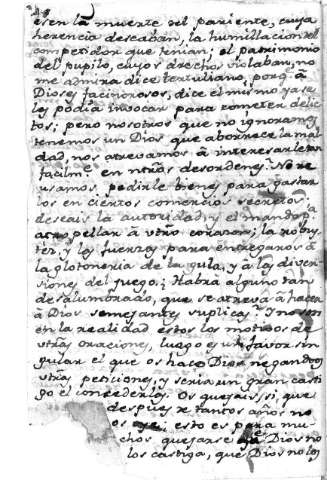 eren la muerte del pariente, cuya
herencia deseaban, la humillacion del
competidor que tenian; el patrimonio
del pupilo, cuyos drechos violaban, no
me admira dice tertuliano, porq. à
Dioses facinorosos, dice el mismo, ya se
les podia invocar para cometer delic-
tos; pero nosotros que no ignoramos
tenemos un Dios que aborrece la mal-
dad, nos atrevamos à interesarle tan
facilm.e en ntros desordenes. No re-
usamos pedirle bienes para gastar
los en ciertos comercios secretos:
deseais la autoridad, y el mando p.a
atropellar à vtro
y las fuerzas para entregaros à
la glotoneria de la gula, y à las diver-
siones del juego; Habrà alguno tan
desalumbrado, que se atreva à hacer
à Dios semejantes suplicas? Y no son
en la realidad estos los motivos de
vtras oraciones, luego es un favor sin
gular el que os hace Dios negando os
vtras peticiones, y seria un gran casti
go el concederlas. Os quejais, si, que
despues de tantos años no
os oye; esto es para mu-
chos quejarse de Dios no
los castiga, que Dios no los